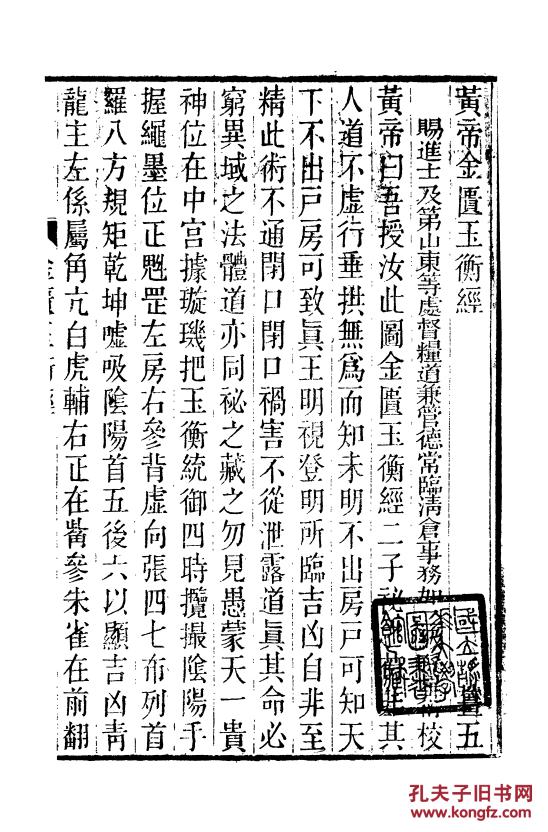 黃帝金匱玉衡經
五
賜進士及第山東等處督糧道兼管德常臨淸倉事務
校
黃帝曰吾授汝此圖金匱玉衡經二子祕
其
人道不虛行垂拱無爲而知未明不出房戸可知天
下不出戸房可致眞王明視登明所臨吉凶自非至
精此術不通閉口閉口禍害不從泄露道眞其命必
窮異域之法體道亦同祕之藏之勿見愚蒙天一貴
神位在中宫據璇璣把玉衡統御四時攬撮陰陽手
握繩墨位正魁罡左房右參背虛向張四七布列首
羅八方規矩乾坤嘘吸陰陽首五後六以顯吉凶靑
龍主左係屬角亢白虎輔右正在觜參朱雀在前翻
孔夫子旧书网
www.kongfz.com